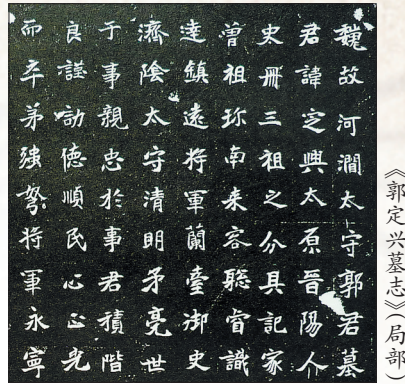 魏故河澗太守郭君墓
君諱㝎興太原晉陽人
史冊三祖之分具記家
曾祖珎南来容聡睿識
逹鎮遠将軍蘭臺御史
濟陰太守清明矛亮世
于事親忠於事君積階
良謹德順民心正光
而卒弟强弩将軍永寧
《郭定兴墓志》(局部)